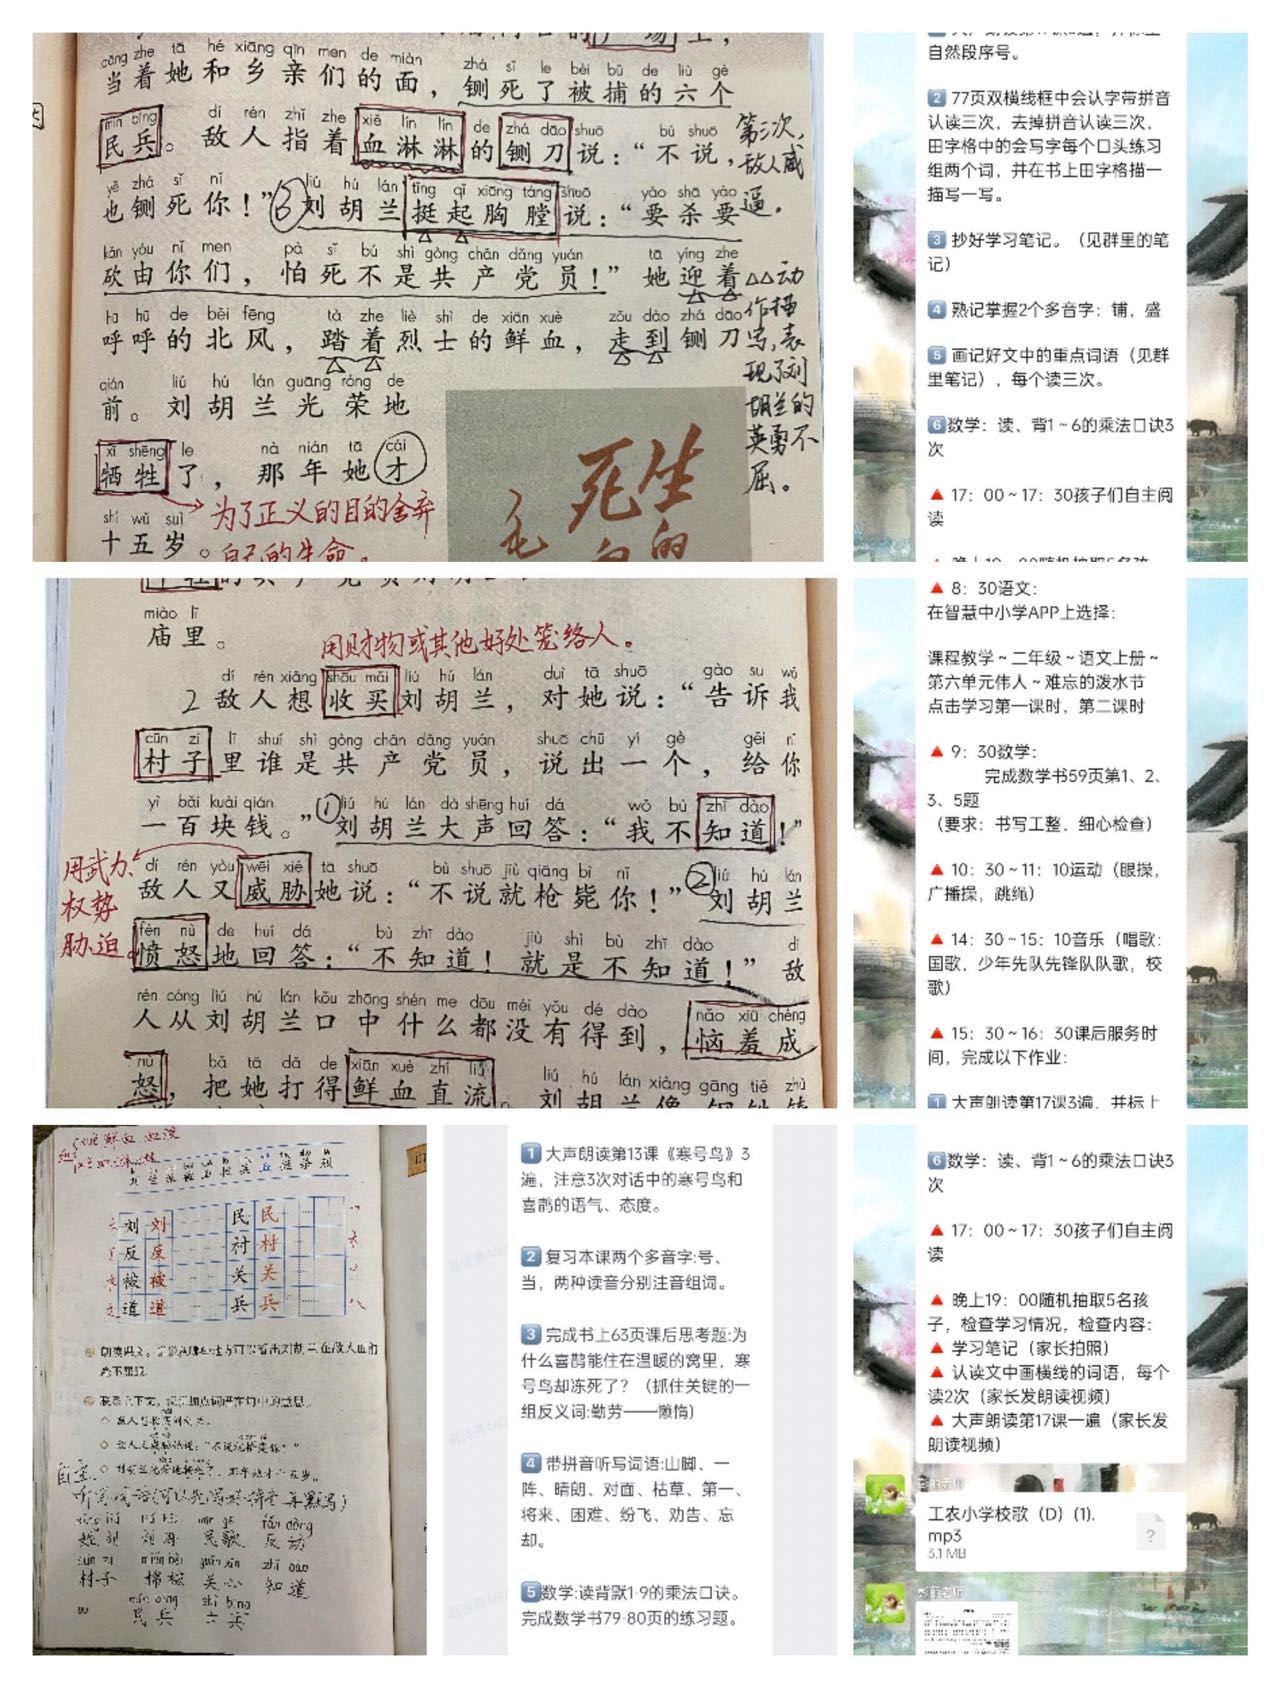 dāng zhe tā hé xiāng qīn men de miàn zhá sǐ le bèi bǔ de liù gè
当着她和乡亲们的面，铡死了被捕的六个
mín bīng dí rén zhǐ zhe xiě lín lín de zhá dāo shuō bù shuō
民兵。敌人指着血淋淋的铡刀说：“不说，
第三次，
敌人威
逼。
yě zhá sǐ nǐ liú hú lán tǐng qǐ xiōng táng shuō yào shā yào
也铡死你！”③刘胡兰挺起胸膛说：“要杀要
kǎn yóu nǐ men pà sǐ bú shì gòng chǎn dǎng yuán tā yíng zhe
砍由你们，怕死不是共产党员！”她迎着
△△动
作描
写，表
现了刘
胡兰的
英勇不
屈。
hū hū de běi fēng tà zhe liè shì de xiān xuè zǒu dào zhá dāo
呼呼的北风，踏着烈士的鲜血，走到铡刀
qián liú hú lán guāng róng de
前。刘胡兰光荣地
xī shēng le nà nián tā cái
牺牲了，那年她才
为了正义的目的舍弃
自己的生命。
shí wǔ suì
十五岁。
死生
的
自然段序号。
2 77页双横线框中会认字带拼音
认读三次，去掉拼音认读三次，
田字格中的会写字每个口头练习
组两个词，并在书上田字格描一
描写一写。
3 抄好学习笔记。（见群里的笔
记）
4 熟记掌握2个多音字：铺，盛
5 画记好文中的重点词语（见群
里笔记），每个读三次。
6数学：读、背1~6的乘法口诀3
次
🔺 17：00~17：30孩子们自主阅
读
miào lǐ
庙里。
用财物或其他好处笼络人。
dí rén xiǎng shōu mǎi liú hú lán duì tā shuō gào su wǒ
2 敌人想收买刘胡兰，对她说：“告诉我
cūn zi lǐ shuí shì gòng chǎn dǎng yuán shuō chū yí gè gěi nǐ
村子里谁是共产党员，说出一个，给你
yì bǎi kuài qián liú hú lán dà shēng huí dá wǒ bù zhī dào
一百块钱。”①刘胡兰大声回答：“我不知道！”
用武力、
权势
胁迫。
dí rén yòu wēi xié tā shuō bù shuō jiù qiāng bì nǐ liú hú lán
敌人又威胁她说：“不说就枪毙你！”②刘胡兰
fèn nù de huí dá bù zhī dào jiù shì bù zhī dào dí
愤怒地回答：“不知道！就是不知道！”敌
rén cóng liú hú lán kǒu zhōng shén me dōu méi yǒu dé dào nǎo xiū chéng
人从刘胡兰口中什么都没有得到，恼羞成
nù bǎ tā dǎ de xiān xuè zhí liú liú hú lán xiàng gāng tiě zhù
怒，把她打得鲜血直流。刘胡兰像钢铁铸
🔺 8：30语文：
在智慧中小学APP上选择：
课程教学~二年级~语文上册~
第六单元伟人~难忘的泼水节
点击学习第一课时，第二课时
🔺 9：30数学：
完成数学书59页第1、2、
3、5题
（要求：书写工整，细心检查）
🔺 10：30~11：10运动（眼操，
广播操，跳绳）
🔺 14：30~15：10音乐（唱歌：
国歌，少年先队先锋队队歌，校
歌）
🔺 15：30~16：30课后服务时
间，完成以下作业：
1 大声朗读第17课3遍，并标上
刘 刘 民 民
反 反 村 村
被 被 关 关
道 道 兵 兵
村子 棉被 关心 知道
民兵 士兵
1 大声朗读第13课《寒号鸟》3
遍，注意3次对话中的寒号鸟和
喜鹊的语气、态度。
2 复习本课两个多音字:号、
当，两种读音分别注音组词。
3 完成书上63页课后思考题:为
什么喜鹊能住在温暖的窝里，寒
号鸟却冻死了？（抓住关键的一
组反义词:勤劳——懒惰）
4 带拼音听写词语:山脚、一
阵、晴朗、对面、枯草、第一、
将来、困难、纷飞、劝告、忘
却。
5数学:读背默1-9的乘法口诀。
完成数学书79-80页的练习题。
6数学：读、背1~6的乘法口诀3
次
🔺 17：00~17：30孩子们自主阅
读
🔺 晚上19：00随机抽取5名孩
子，检查学习情况，检查内容：
🔺 学习笔记（家长拍照）
🔺 认读文中画横线的词语，每个
读2次（家长发朗读视频）
🔺 大声朗读第17课一遍（家长发
朗读视频）
工农小学校歌（D）(1).
mp3
3.1 MB
?